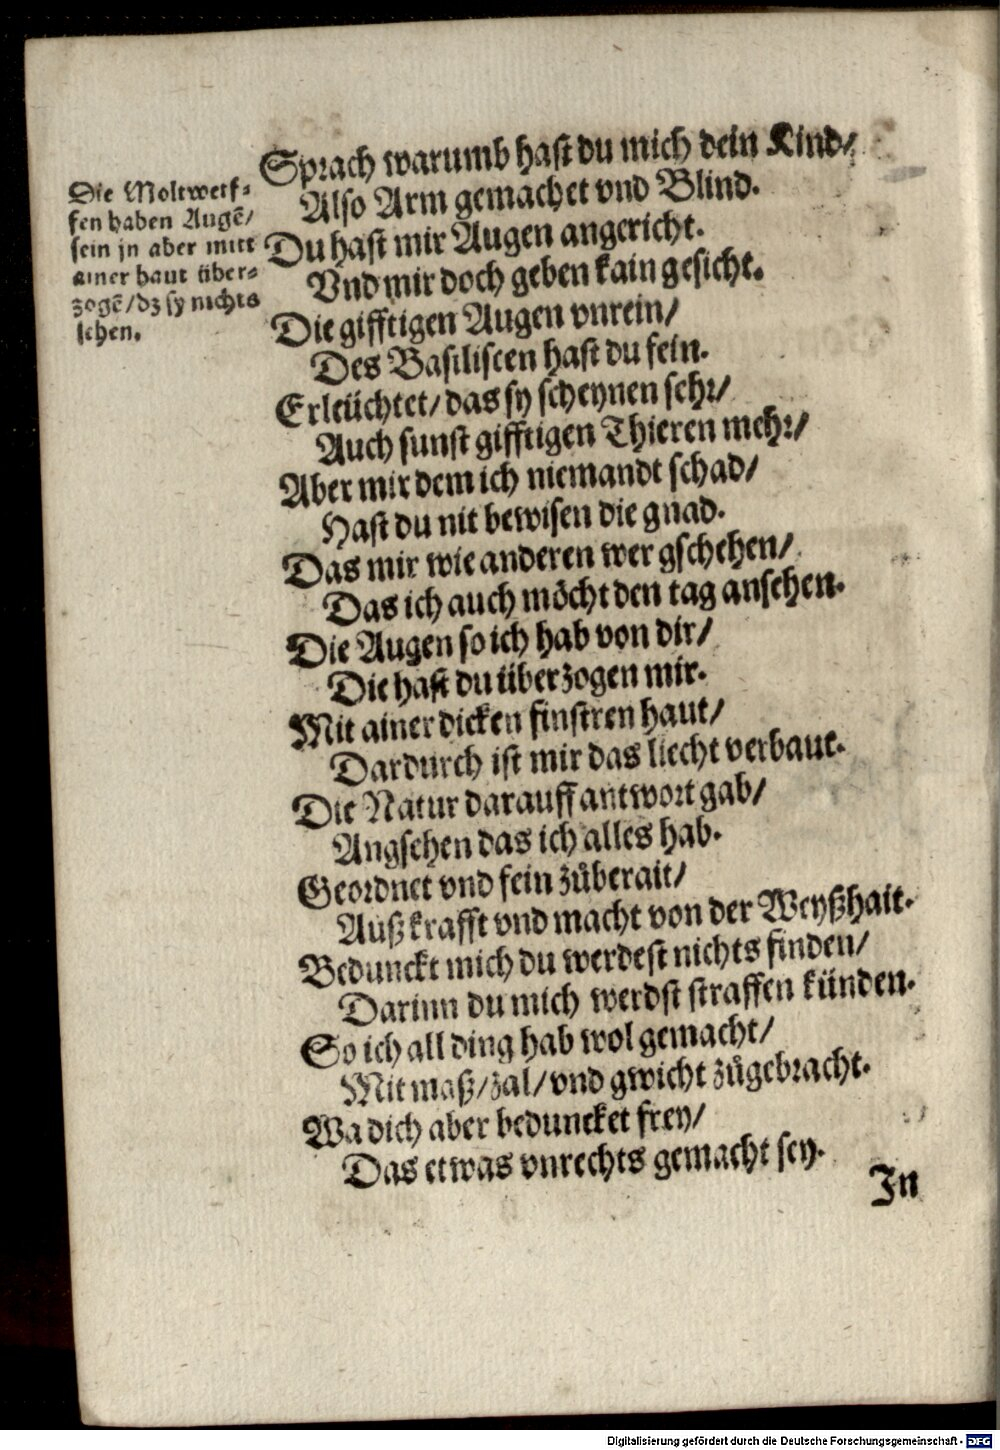 Die Moltwerf-
fen haben Augē/
sein jn aber mitt
ainer haut über-
zogē/dz sy nichts
sehen.
Sprach warumb hast du mich dein Kind/
Also Arm gemachet vnd Blind.
Du hast mir Augen angericht.
Vnd mir doch geben kain gesicht.
Die gifftigen Augen vnrein/
Des Basiliscen hast du fein.
Erleüchtet/das sy scheynen sehr/
Auch sunst gifftigen Thieren mehr/
Aber mir dem ich niemandt schad/
Hast du nit bewisen die gnad.
Das mir wie anderen wer gschehen/
Das ich auch möcht den tag ansehen.
Die Augen so ich hab von dir/
Die hast du überzogen mir.
Mit ainer dicken finstren haut/
Dardurch ist mir das liecht verbaut.
Die Natur darauff antwort gab/
Angsehen das ich alles hab.
Geordnet vnd fein zůberait/
Auß krafft vnd macht von der Weyßhait.
Bedunckt mich du werdest nichts finden/
Darinn du mich werdst straffen künden.
So ich all ding hab wol gemacht/
Mit maß/zal/vnd gwicht zůgebracht.
Wa dich aber beduncket frey/
Das etwas vnrechts gemacht sey.
In
Digitalisierung gefördert durch die Deutsche Forschungsgemeinschaft - DFG